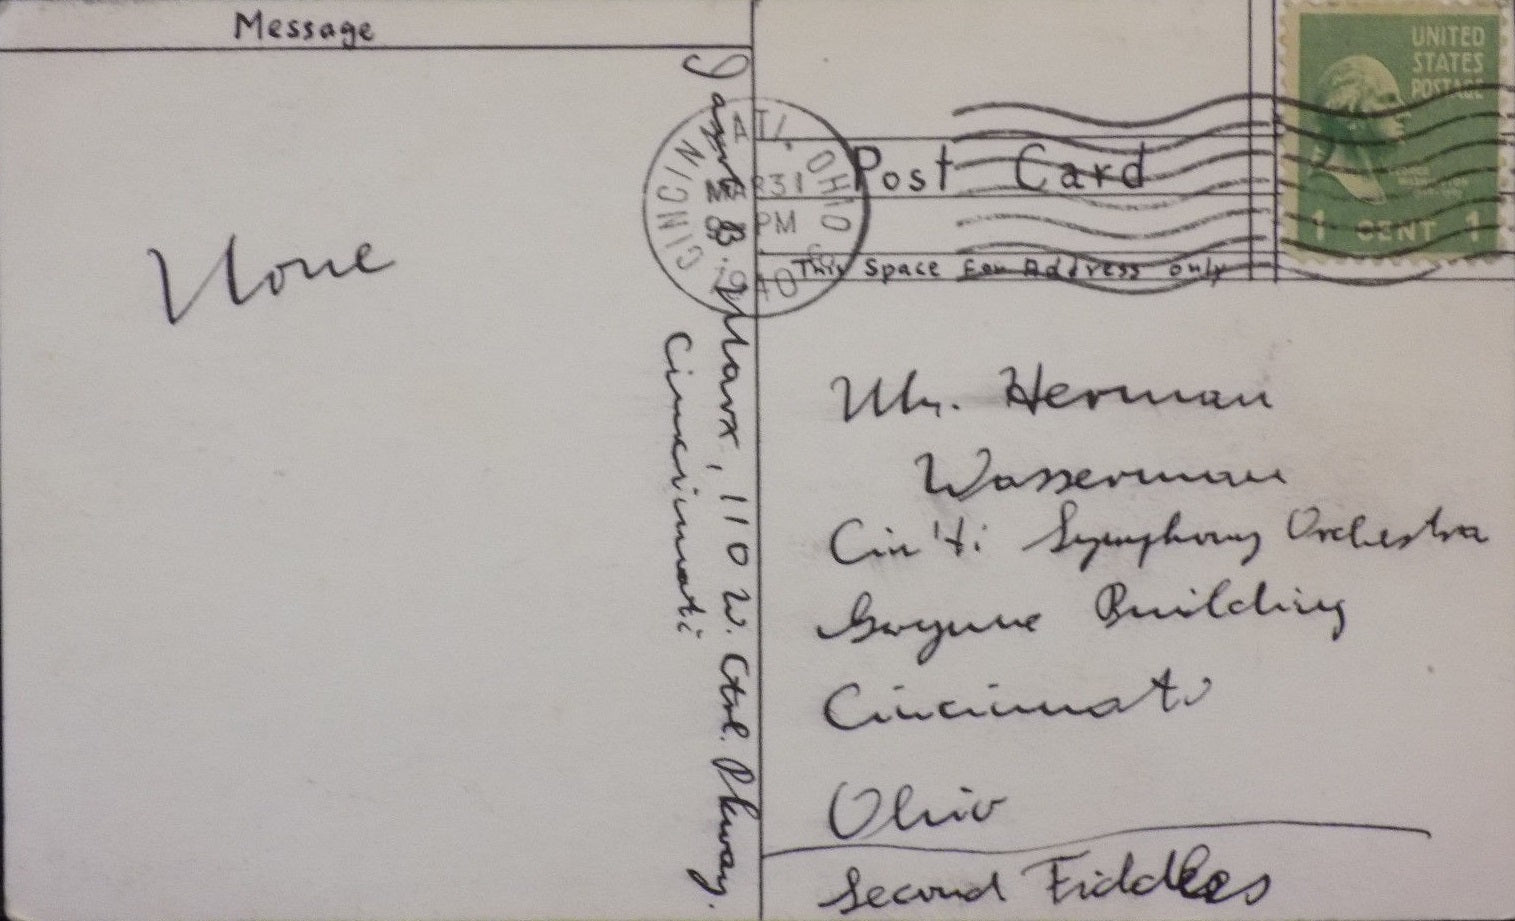 Message
None
B. Marx, 110 W. Ctrl. Pkway.
Cincinnati
CINCINNATI, OHIO
MAR 31
PM
1940
UNITED
STATES
POSTAGE
1 CENT 1
Post Card
This Space For Address only
Mr. Herman
Wasserman
Cin'ti Symphony Orchestra
Gwynne Building
Cincinnati
Ohio
Second Fiddles